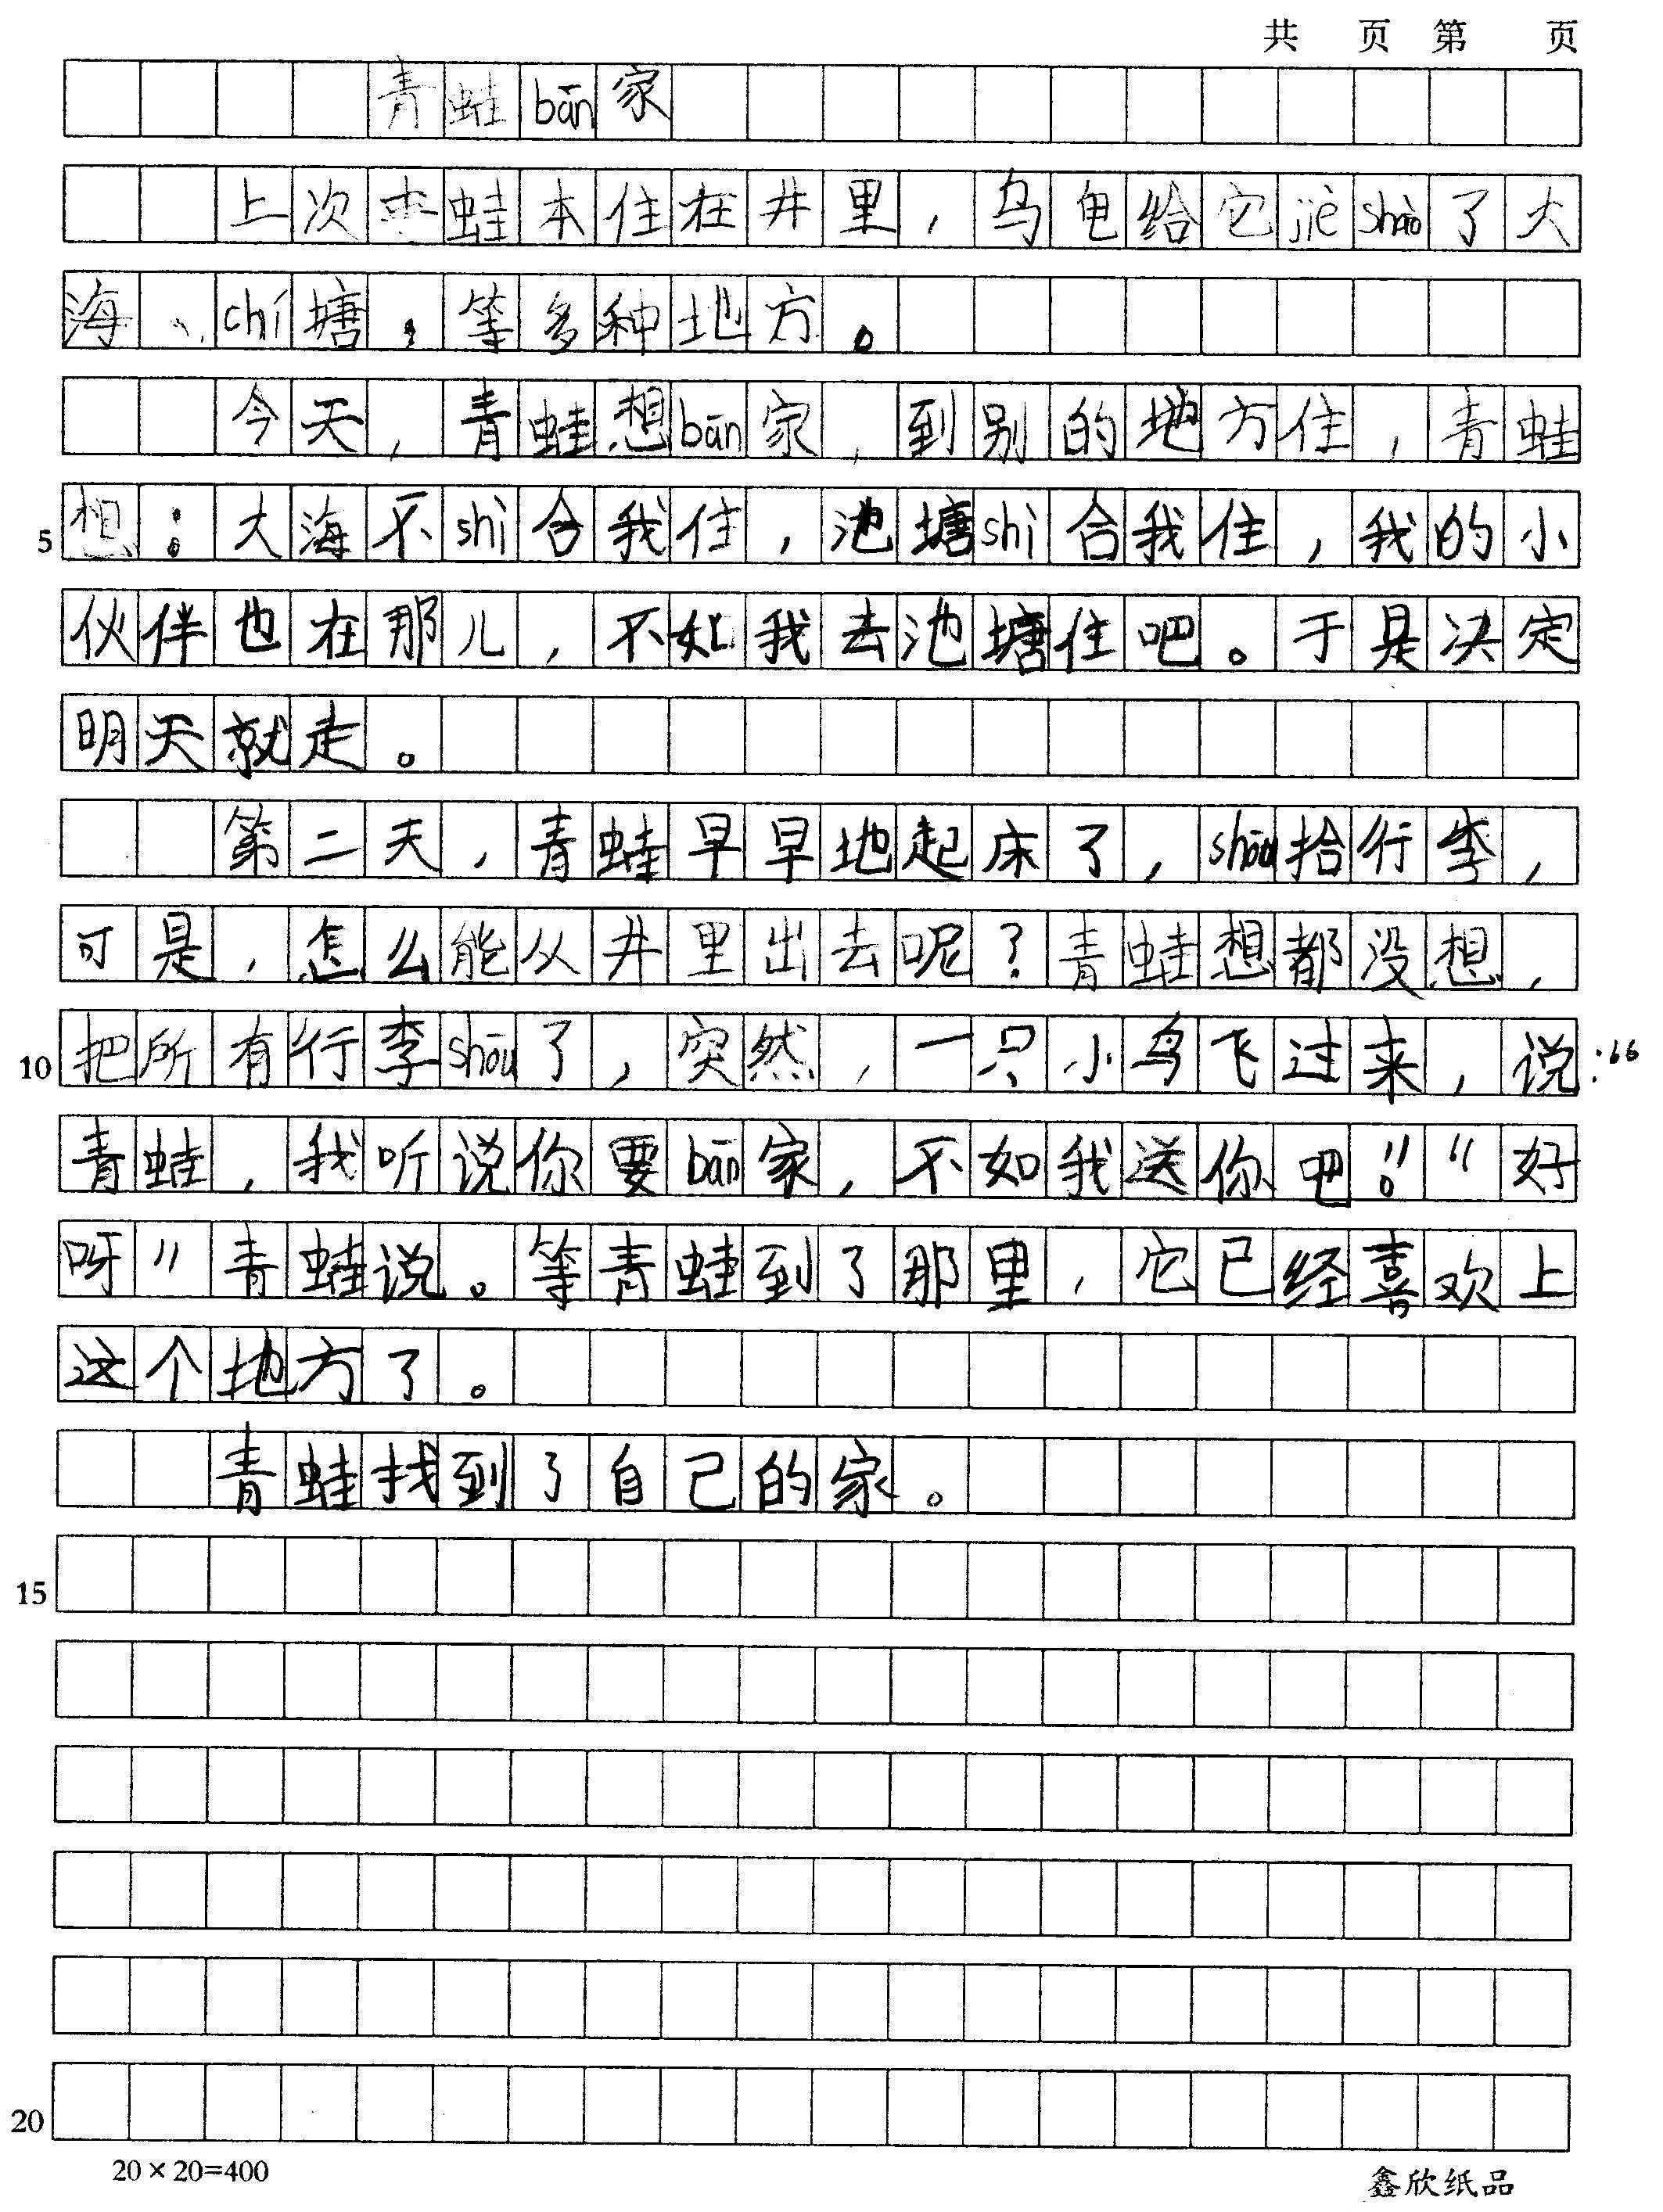 共 页 第 页
青蛙bān家
上次青蛙本住在井里，乌龟给它jièshào了大
海、chí塘，等多种地方。
今天，青蛙想bān家，到别的地方住，青蛙
5 想：大海不shì合我住，池塘shì合我住，我的小
伙伴也在那儿，不如我去池塘住吧。于是决定
明天就走。
第二天，青蛙早早地起床了，shōu拾行李，
可是，怎么能从井里出去呢？青蛙想都没想，
10 把所有行李shōu了，突然，一只小鸟飞过来，说：“
青蛙，我听说你要bān家，不如我送你吧！”“好
呀”青蛙说。等青蛙到了那里，它已经喜欢上
这个地方了。
青蛙找到了自己的家。
15
20
20×20=400 鑫欣纸品